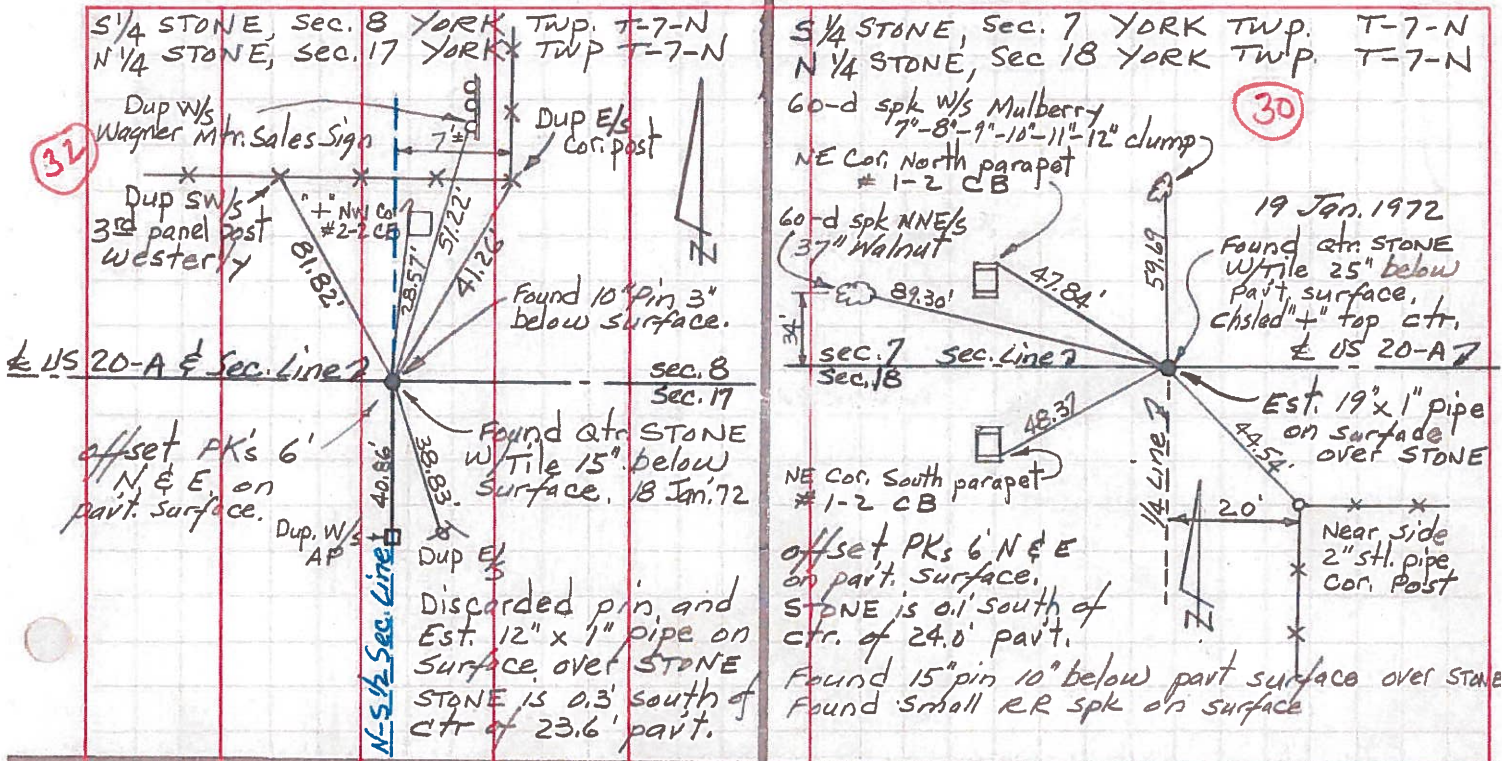 S 1/4 STONE, Sec. 8 YORK TWP. T-7-N
N 1/4 STONE, Sec. 17 YORK TWP T-7-N
32
Dup W/s
Wagner Mtr. Sales Sign
7'±
Dup E/s
Cor. post
Dup SW/s
3rd panel post
Westerly
"+" NW Cor
#2-2 CB
81.82'
28.57'
51.22'
41.26'
N
Found 10" pin 3"
below surface.
℄ US 20-A & Sec. Line
sec. 8
Sec. 17
offset PK's 6'
N & E. on
pav't. surface.
40.86'
38.83'
Found Qtr. STONE
W/Tile 15" below
Surface. 18 Jan. '72
Dup. W/s
AP
Dup E/s
N-S 1/2 Sec. Line
Discarded pin and
Est. 12" x 1" pipe on
Surface over STONE
STONE is 0.3' south of
ctr of 23.6' pav't.
S 1/4 STONE, Sec. 7 YORK TWP. T-7-N
N 1/4 STONE, Sec 18 YORK TWP. T-7-N
30
60-d spk W/s Mulberry
7"-8"-9"-10"-11"-12" clump
NE Cor. North parapet
# 1-2 CB
60-d spk NNE/s
37" Walnut
19 Jan. 1972
Found Qtr. STONE
W/Tile 25" below
pav't. surface.
Chsled "+" top ctr.
59.69
47.84'
89.30'
34'
sec. 7 Sec. Line
Sec. 18
℄ US 20-A
48.37
44.54'
Est. 19" x 1" pipe
on surface
over STONE
NE Cor. South parapet
# 1-2 CB
1/4 Line
20'
N
Near side
2" stl. pipe
Cor. Post
offset PKs 6' N & E
on pav't. Surface.
STONE is 0.1' south of
ctr. of 24.0' pav't.
Found 15" pin 10" below pavt surface over STONE
Found Small RR spk on surface